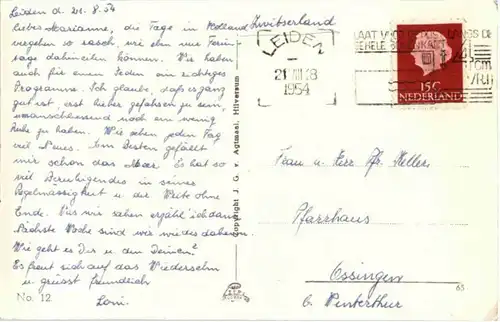 Leiden d. 21. 8. 54
Liebes Marianne, die Tage in Holland Zwitserland
vergehen so rasch, wie eben nur Ferien-
tage dahineilen können. Wir haben
auch für einen jeden ein richtiges
Programm. Ich glaube, dass es ganz
gut ist, erst hieher gefahren zu sein,
voranschliessend noch ein wenig
Ruhe zu haben. Wir sehen jeden Tag
viel Neues. Am Besten gefällt
mir schon das Meer. Es hat so
viel Beruhigendes in seiner
Regelmässigkeit u der Weite ohne
Ende. Was wir sehen erzähl ich dann.
Nächste Woche sind wir wieder daheim.
Wie geht es Dir u den Deinen?
Es freut sich auf das Wiedersehn
u. grüsst freundlich
No. 12
Copyright J. G. v. Agtmaal, Hilversum
LEIDEN
21 VIII 18
1954
LANGS DE
GEHELE
15 C
NEDERLAND
Frau u. Herr Pfr. Keller
Pfarrhaus
Ossingen
b. Winterthur
65